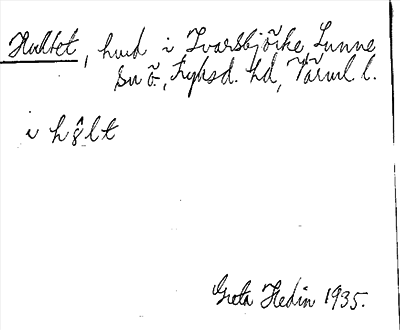 Hultet, hmd i Ivarsbjörke, Sunne
sn ö., Fryksd. hd, Värml l.
i hôlt
Greta Hedin 1935.